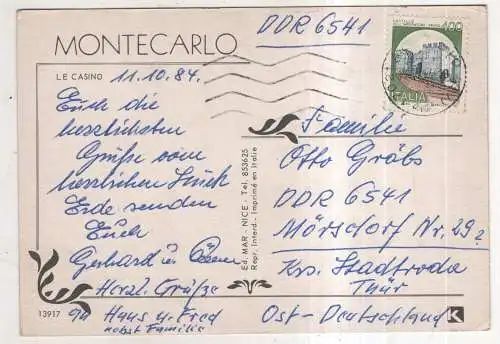 DDR 6541
MONTECARLO
LE CASINO
11.10.84.
Euch die
herzlichsten
Grüße vom
herrlichen Stück
Erde senden
Euch
Gerhard u.
Herzl. Grüße
an Hans u. Fred
nebst Familie
13917
Ed. MAR - NICE - Tel. 853625
Repr. Interd. - Imprimé en Italie
400
ITALIA
Familie
Otto Gräbs
DDR 6541
Mörsdorf Nr. 29
Krs. Stadtroda
Thür
Ost-Deutschland
K